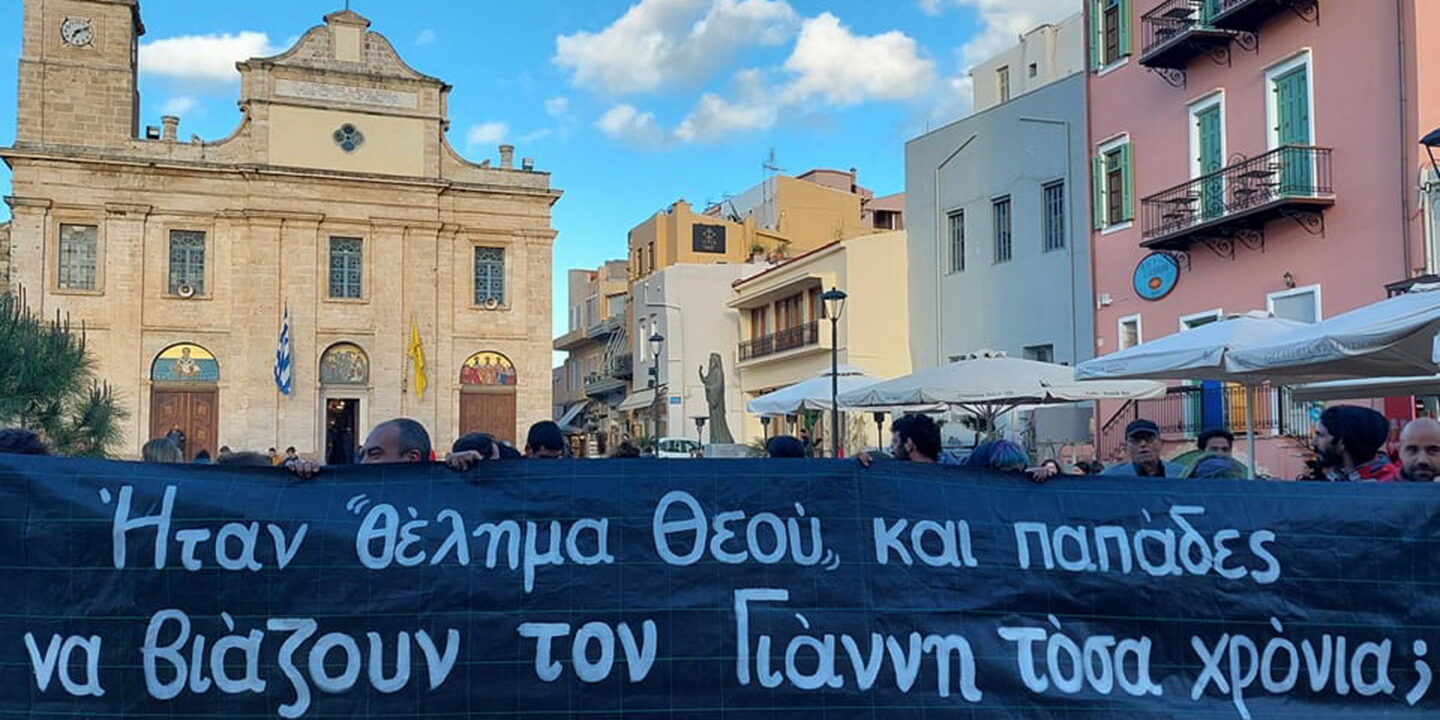 Ήταν "θέλημα Θεού,, και παπάδες
να βιάζουν τον Γιάννη τόσα χρόνια;